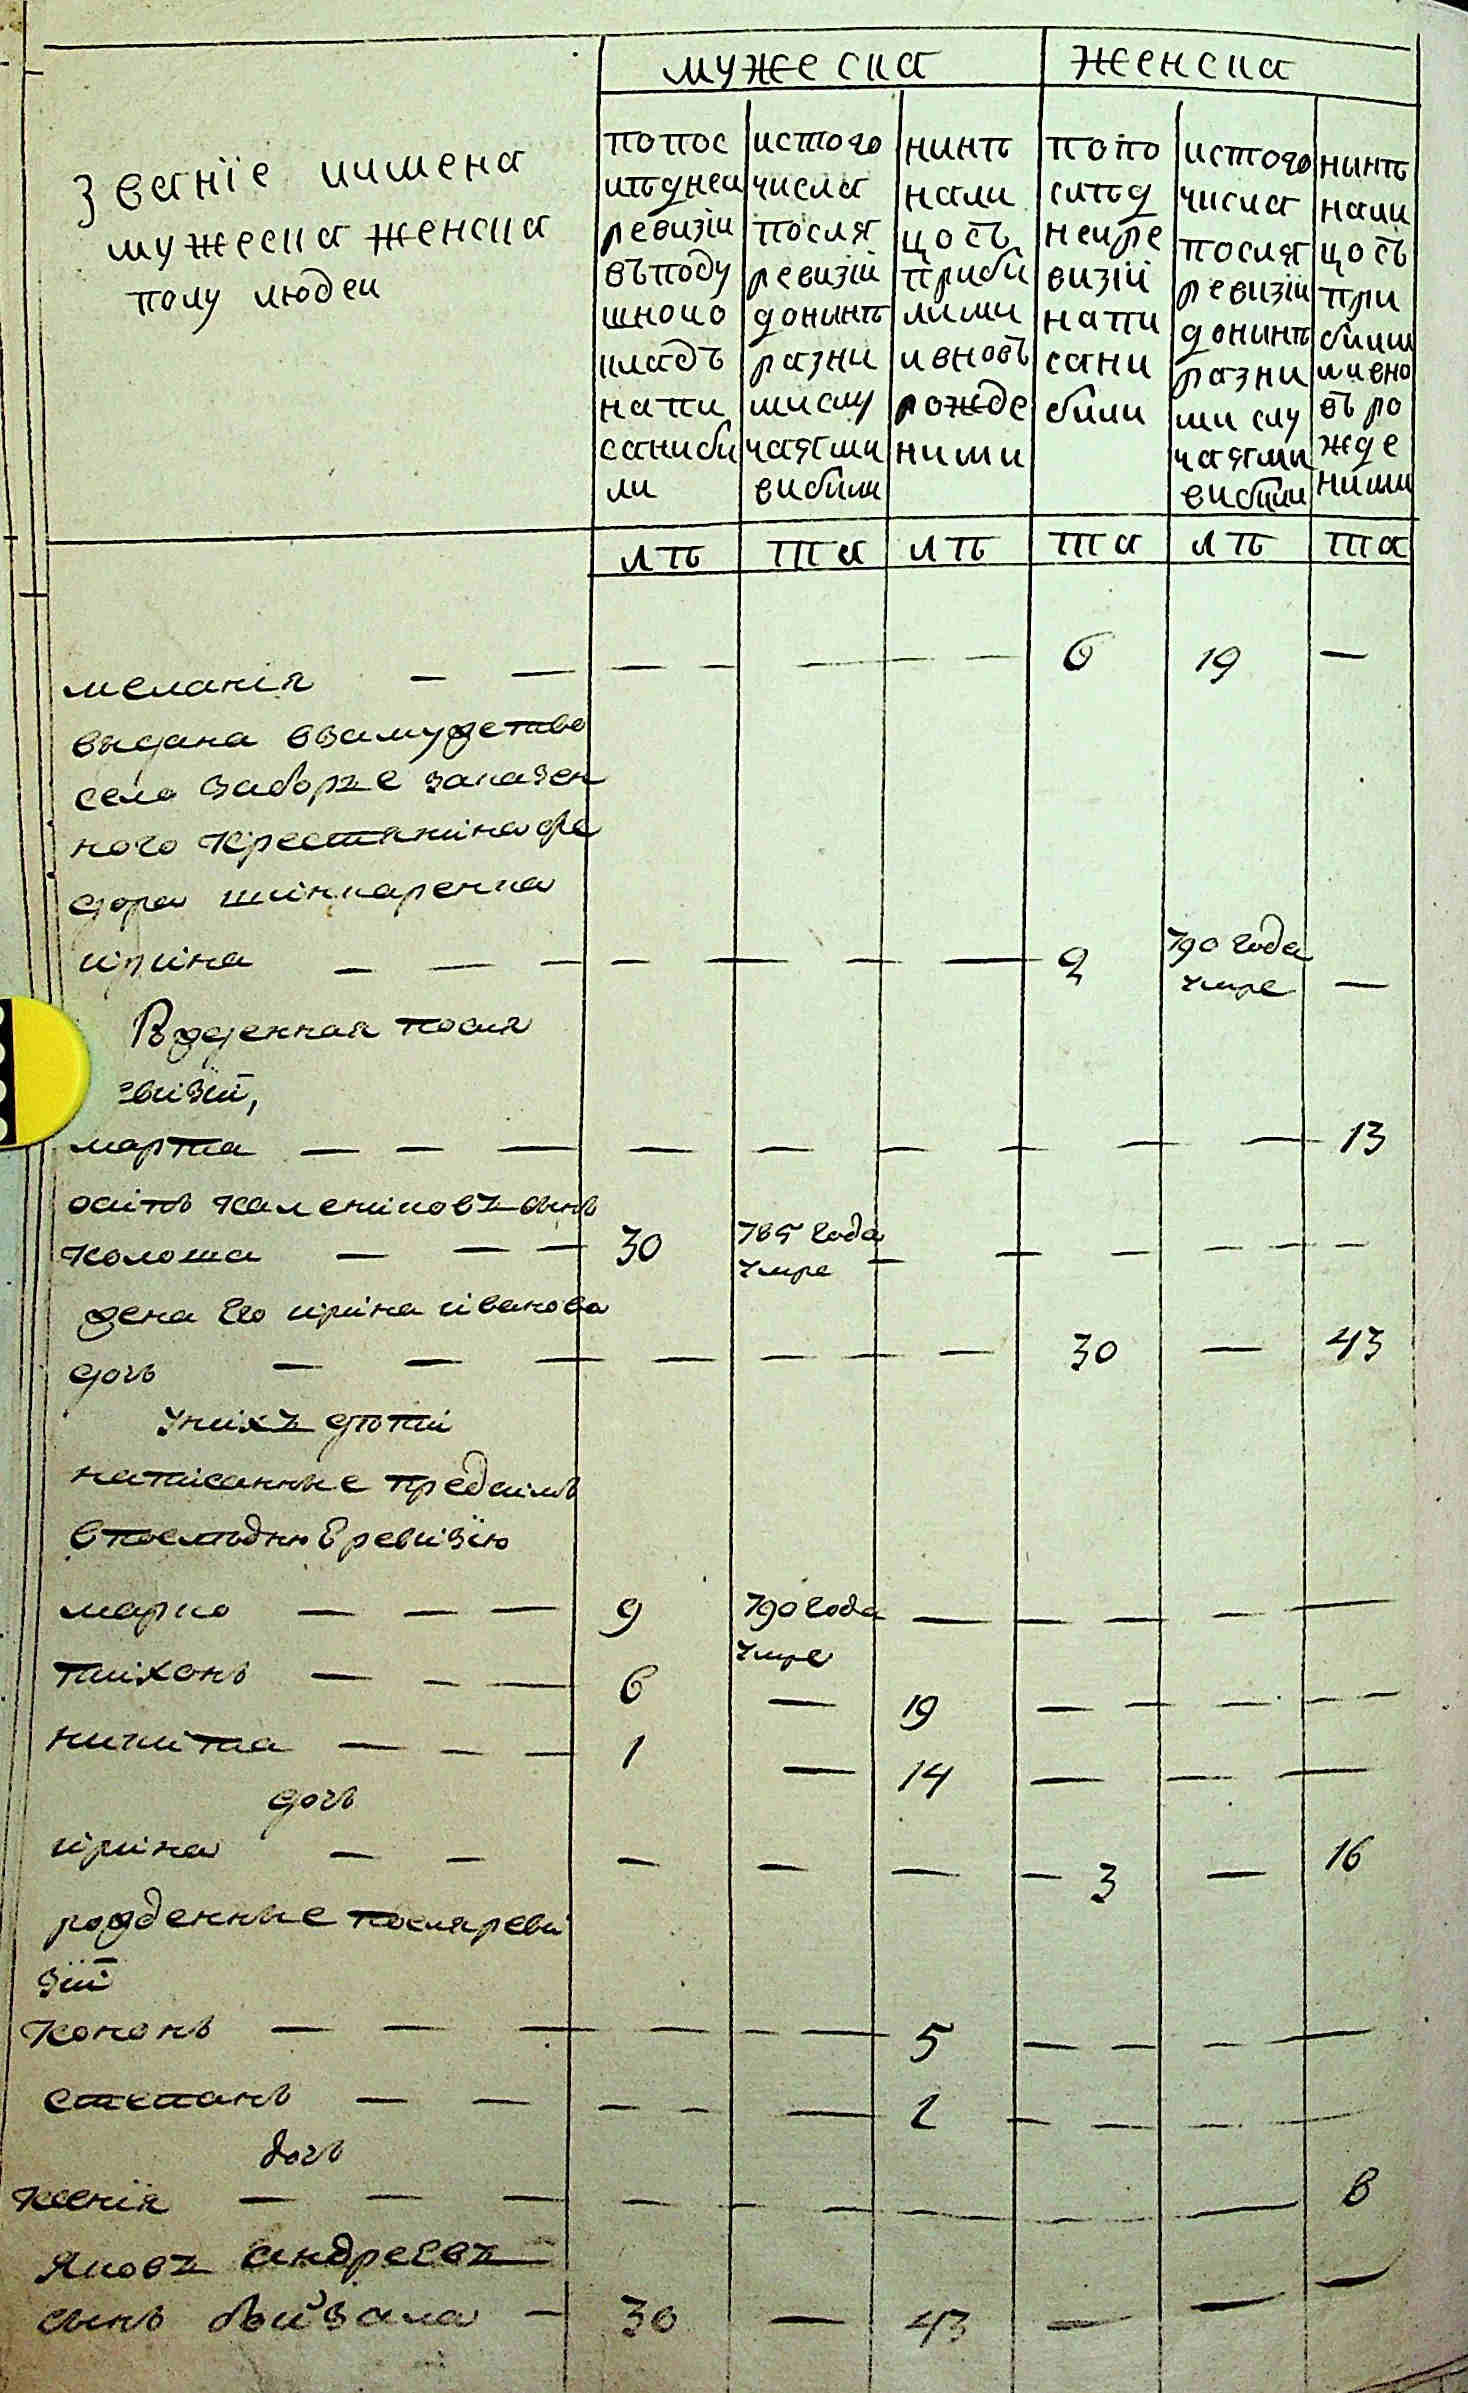 мужеска женска
званіе иимена
мужеска женска
полу людеи
попос
лѣднеи
ревизіи
въподу
шноио
кладъ
напи
саниби
ли
истого
числа
посля
ревизіи
донинѣ
разни
мислу
чаями
вибили
нинѣ
нали
цосъ
приби
лими
ивновъ
рожде
ними
попо
слѣд
неире
визіи
напи
сани
били
истого
числа
посля
ревизіи
донинѣ
разни
ми слу
чаями
вибили
нинѣ
нали
цосъ
при
били
ми вно
въ ро
жде
ними
лѣ та лѣ та лѣ та
меланія — — — — — — — 6 19 —
выдана взамужетво
село заборъе заказен
ного Крестянина фе
дора шинкаренка
ирина — — — — — — — 9 790 года
умре —
Рожденная посля
евизіи,
марта — — — — — — — — — 13
осипъ калениковъ сынъ
колоша — — — 30 785 года
умре — — — — —
жена его ирина иванова
дочь — — — — — — — 30 — 43
унихъ дѣтіи
написанные предсимъ
впослѣднюю ревизію
марко — — — 9 790 года
умре — — — — —
тихонъ — — — 6 — 19 — — — — — —
никита — — — 1 — 14 — — —
дочь
ирина — — — — — — 3 — 16
рожденные посляреви
зіи
кононъ — — — — — — 5 — — — —
степанъ — — — — — 2 — — — —
дочь
ксенія — — — — — — — — — 8
яковъ андреевъ
сынъ бвизала — 30 — 43 — — —